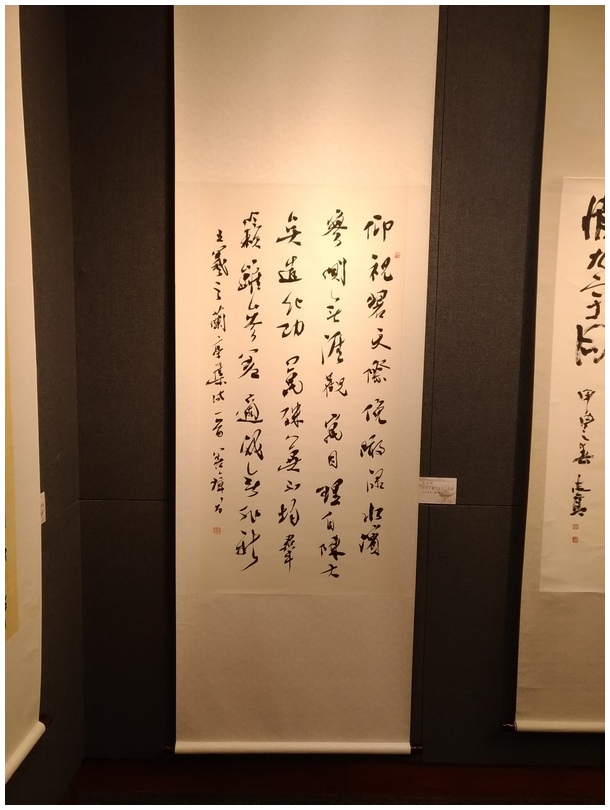 仰視碧天際俛瞰淥水濱
寥無涯觀寓目理自陳大
矣造化功萬殊莫不均羣
籟雖參差適我無非新
王羲之蘭亭集詩一首
情九
之春